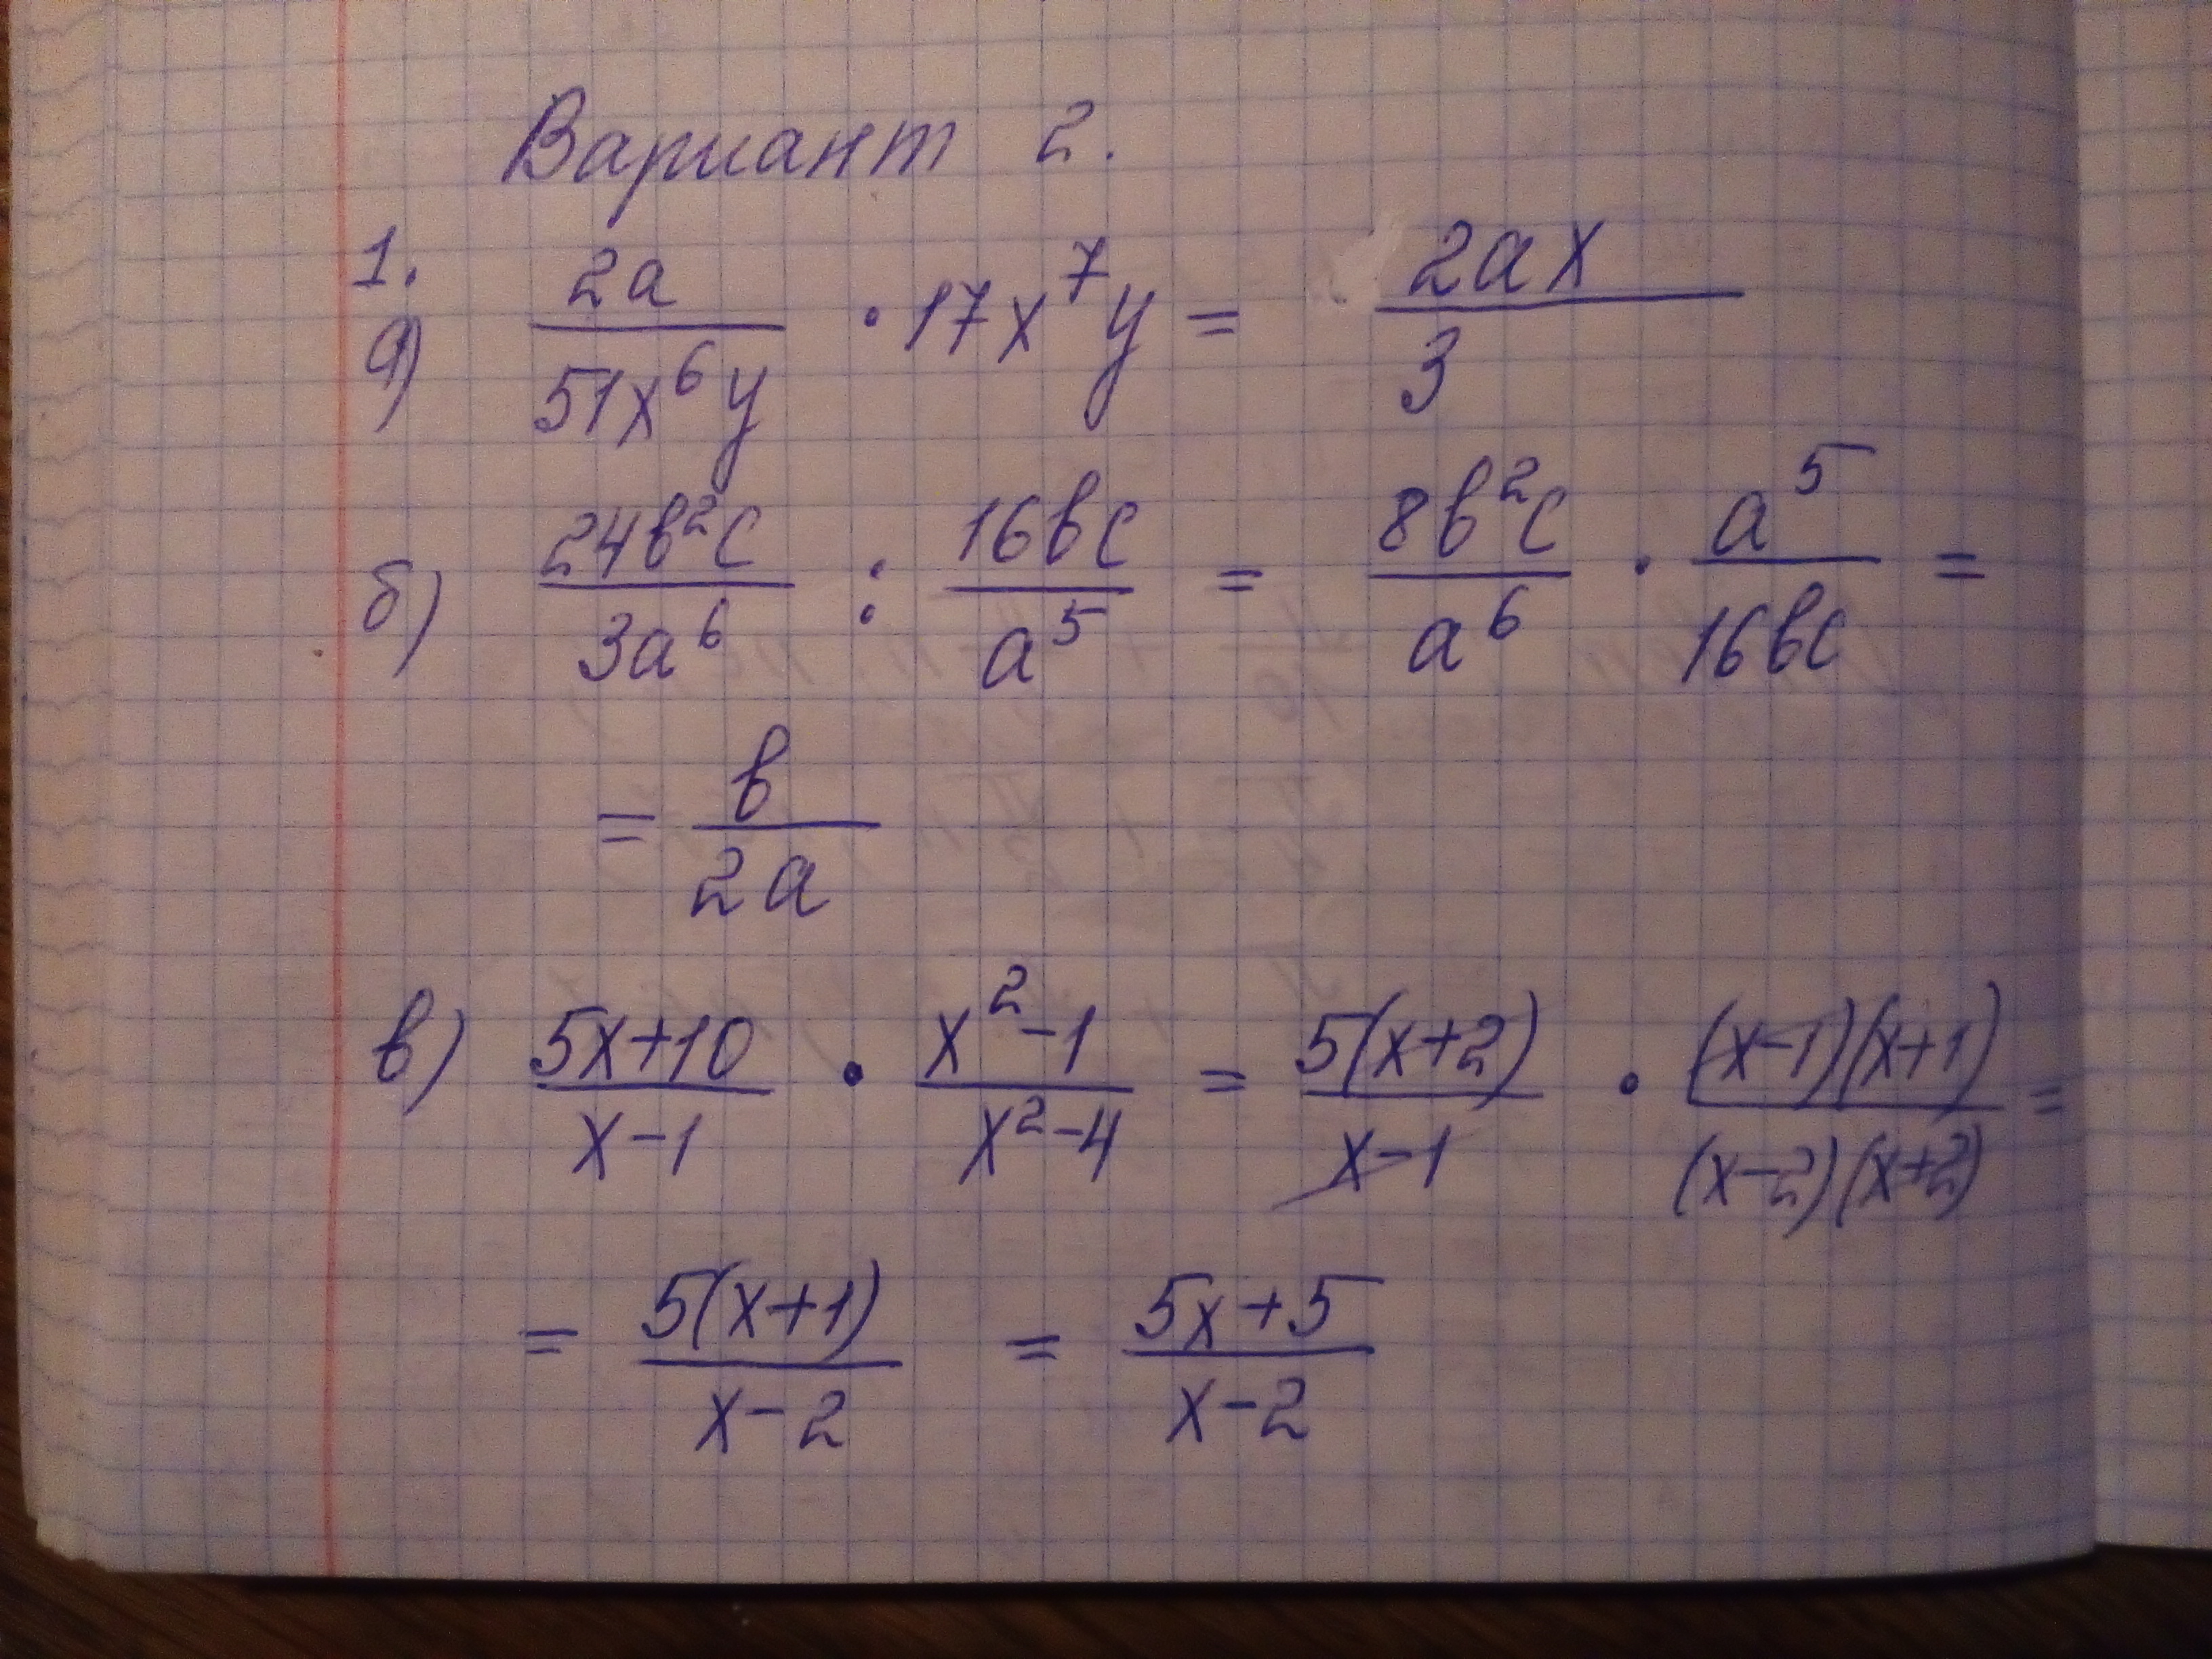 Вариант 2.
1.
а) 2a/(51x⁶y) · 17x⁷y = 2ax/3
б) 24в²с/(3a⁶) : 16вс/a⁵ = 8в²с/a⁶ · a⁵/(16вс) =
= в/(2a)
в) (5x+10)/(x-1) · (x²-1)/(x²-4) = 5(x+2)/(x-1) · (x-1)(x+1)/((x-2)(x+2)) =
= 5(x+1)/(x-2) = (5x+5)/(x-2)